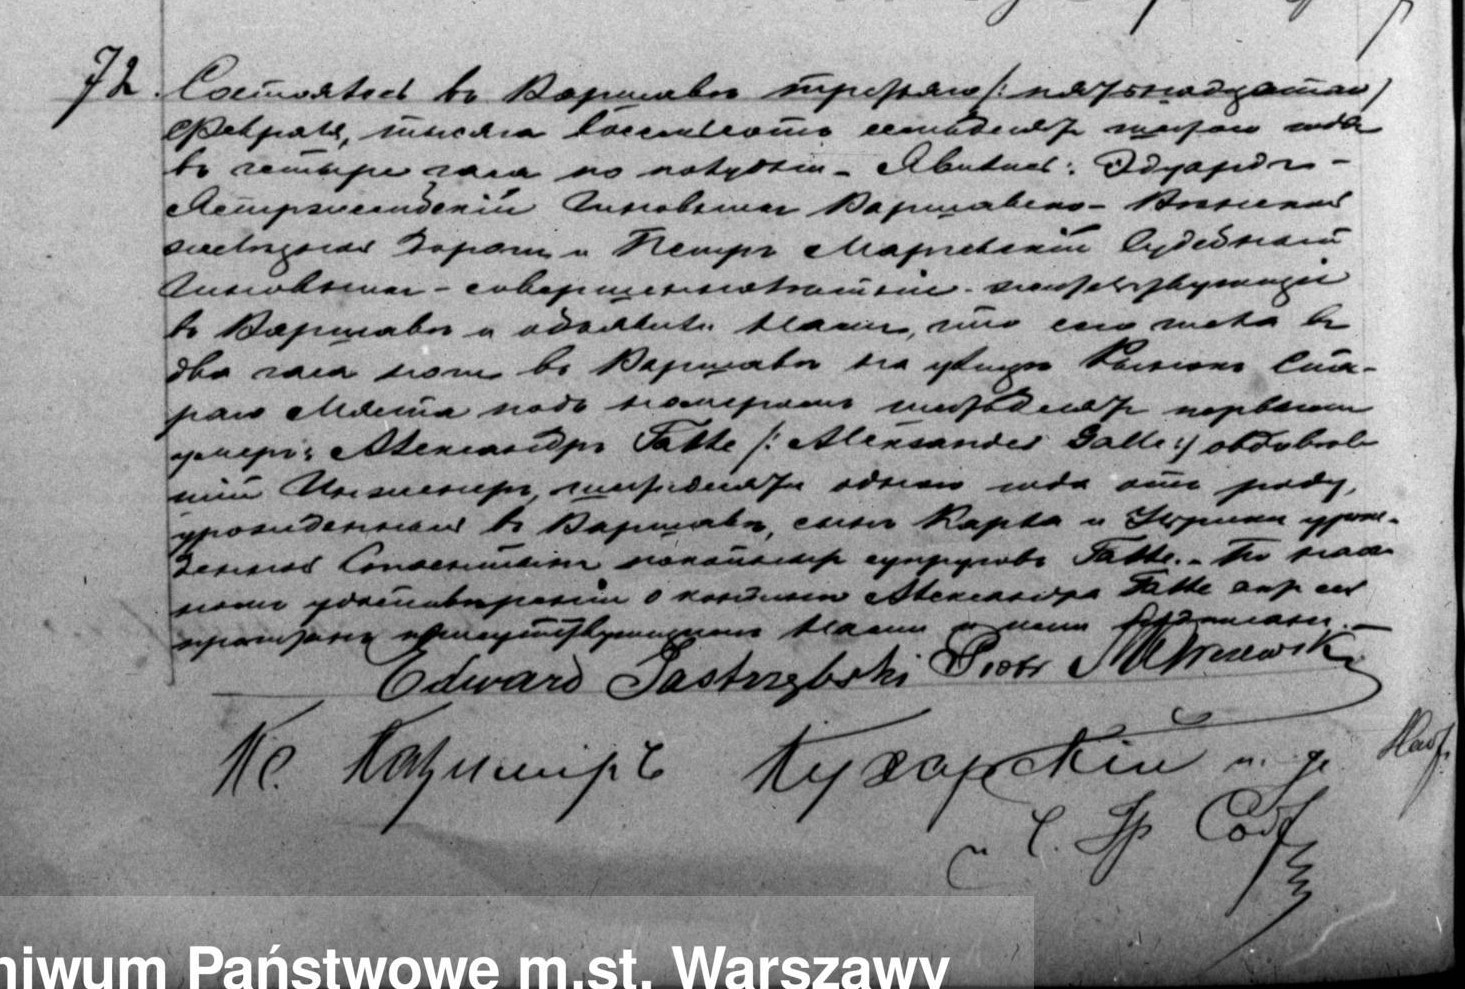 72. Состоялось въ Варшавѣ третьяго /: пятьнадцатаго /
Февраля, тысяча восемьсотъ семьдесятъ шестаго года
въ четыре часа по полудни - Явились: Эдуардъ -
Ястржембскій Чиновникъ Варшавско - Вѣнской
желѣзной дороги и Петръ Судебный
Чиновникъ - совершеннолѣтніе - жительствующіе
въ Варшавѣ и объявили Намъ, что сего числа въ
два часа ночи въ Варшавѣ на улицѣ Рынокъ Ста-
раго Мяста подъ номеромъ шестьдесятъ первымъ
умеръ: Александръ Галле /: Aleksander Galle :/ овдовѣв-
шій Инженеръ, шестьдесятъ одного года отъ роду,
урожденный въ Варшавѣ, сынъ Карла и урож-
денной покойныхъ супруговъ Галле. - По нагляд-
номъ удостовѣреніи о кончинѣ Александра Галле актъ сей
прочитанъ присутствующимъ Нами и ними подписанъ. -
Edward Jastrzębski Piotr
Кс. Казиміръ Кухарскій и. д.
и Ч. Гр. Сост.
hiwum Państwowe m.st. Warszawy